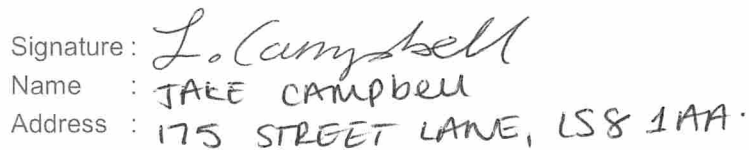 Signature : L. Campbell
Name : JAKE CAMPbell
Address : 175 STREET LANE, LS8 1AA.